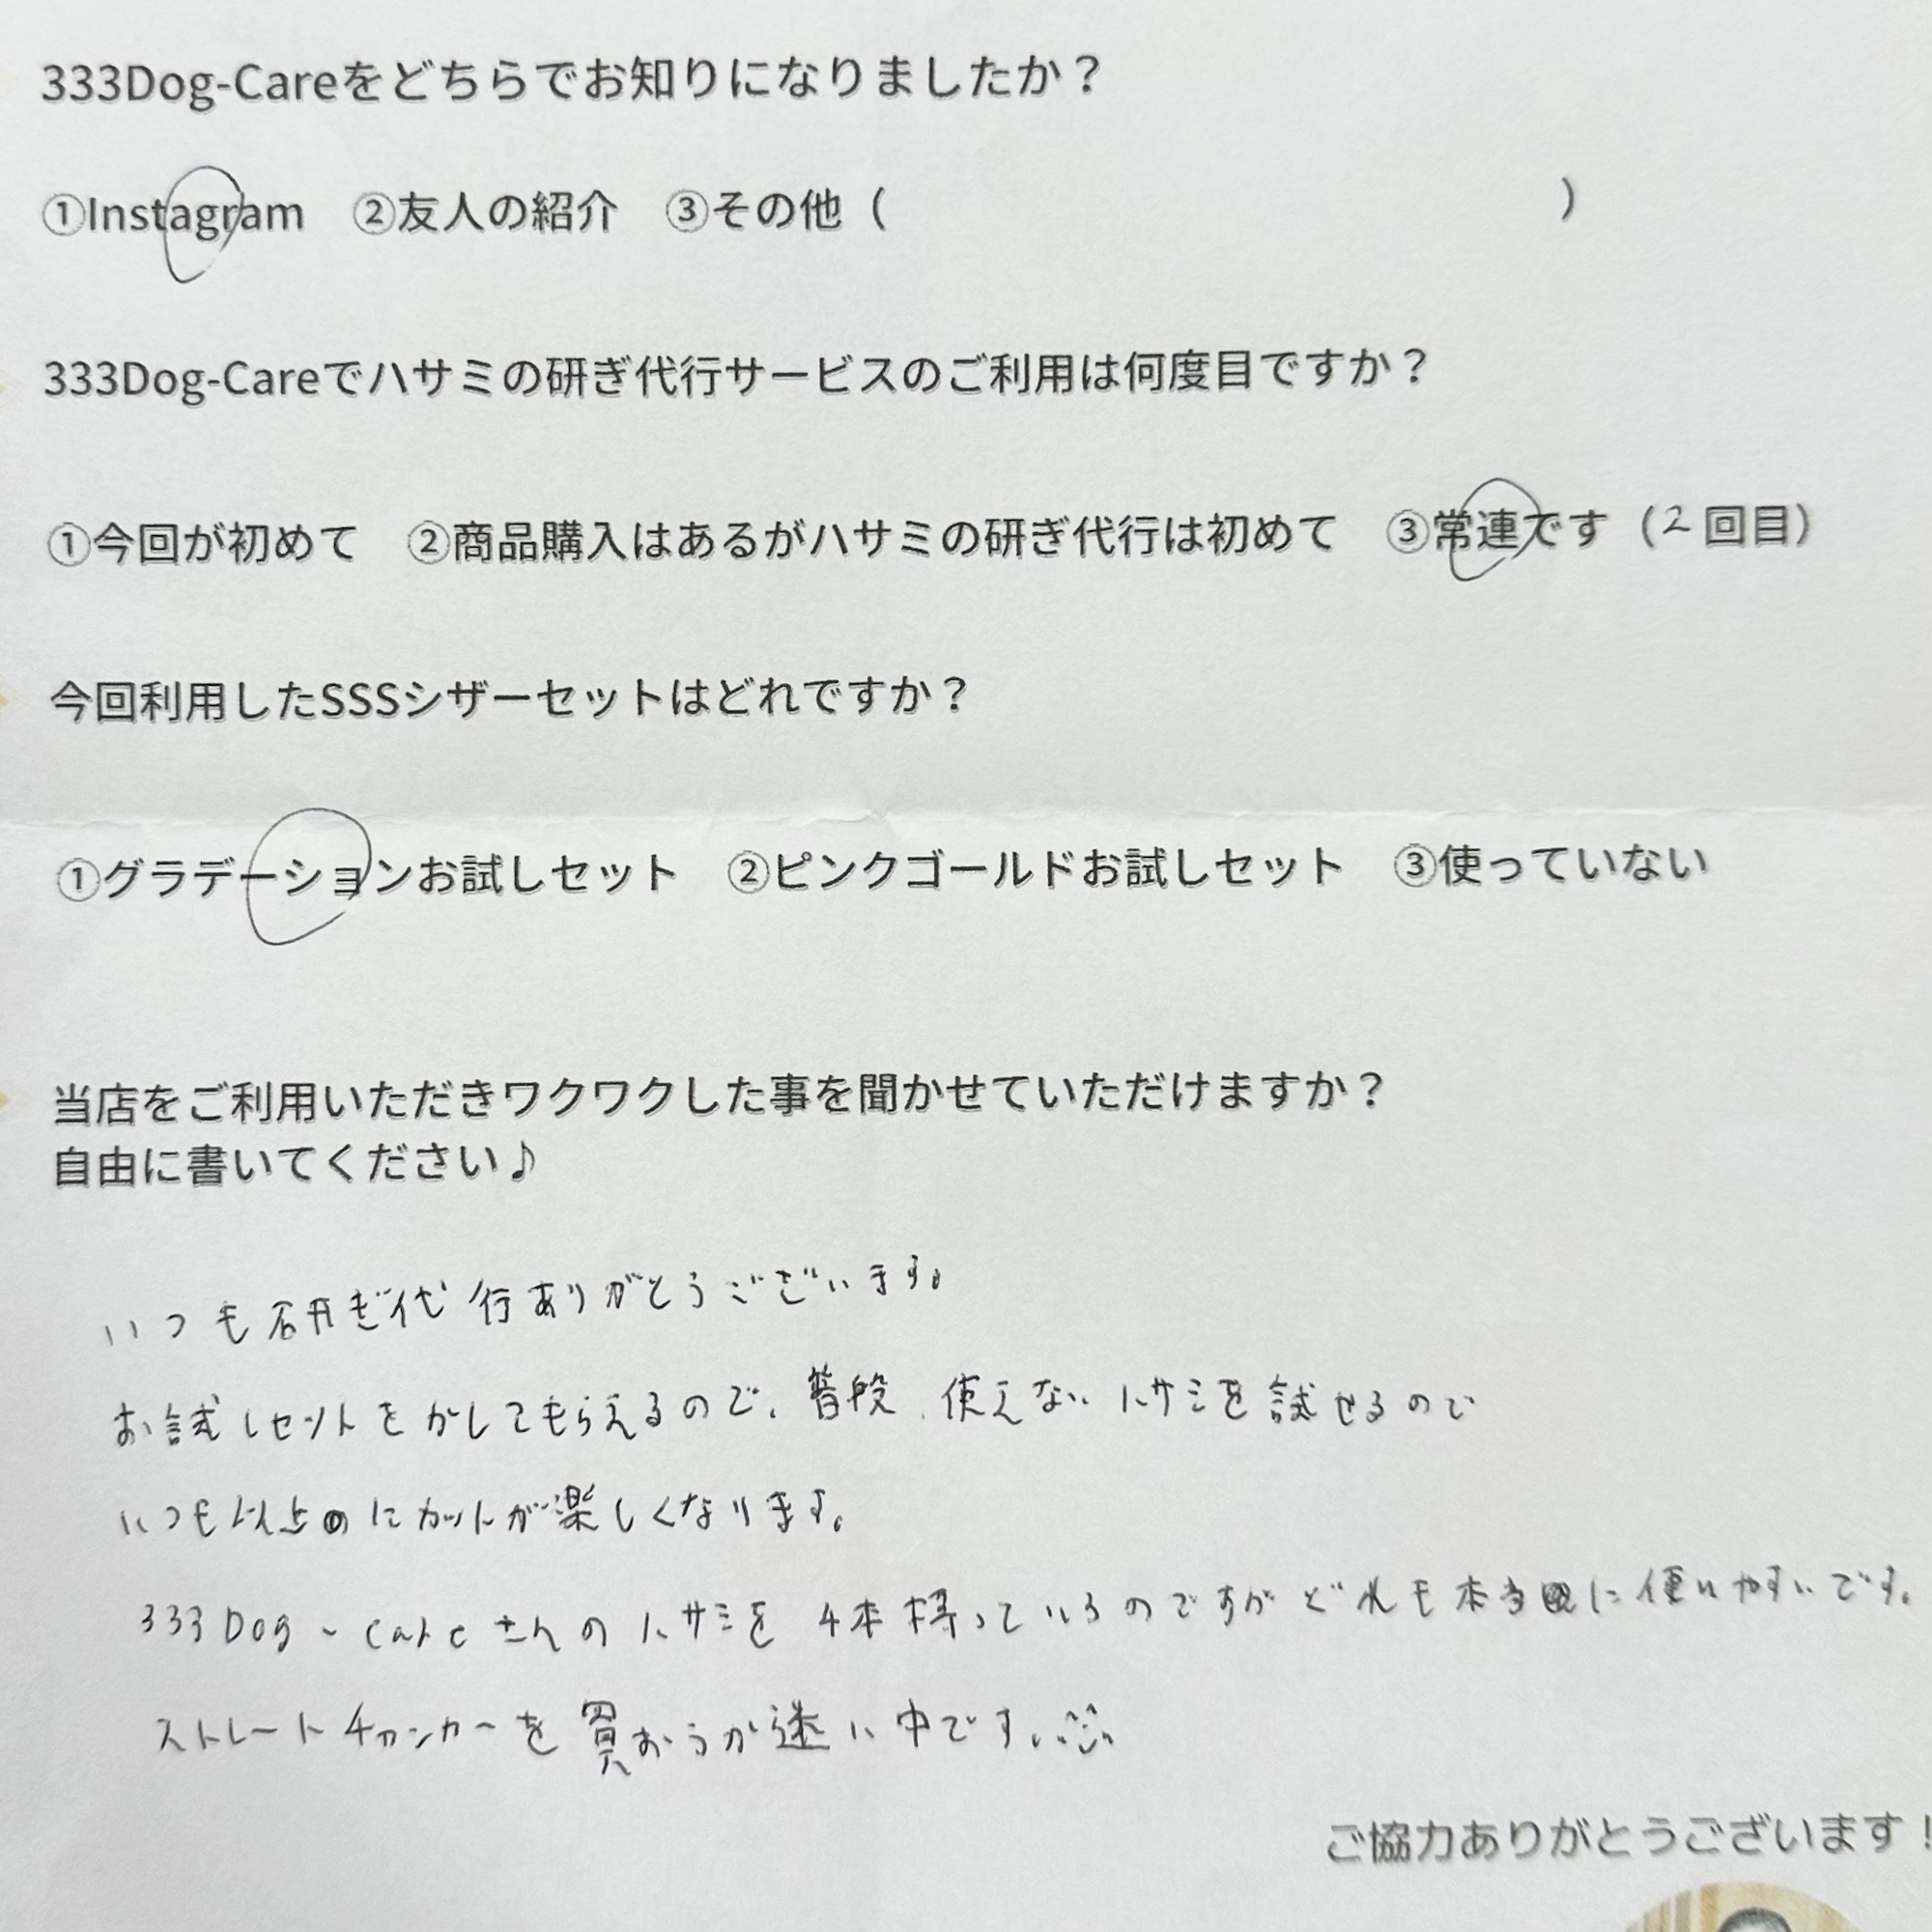 333Dog-Careをどちらでお知りになりましたか？
①Instagram　②友人の紹介　③その他（　　　　　　　　　　　　　　　）
333Dog-Careでハサミの研ぎ代行サービスのご利用は何度目ですか？
①今回が初めて　②商品購入はあるがハサミの研ぎ代行は初めて　③常連です（2回目）
今回利用したSSSシザーセットはどれですか？
①グラデーションお試しセット　②ピンクゴールドお試しセット　③使っていない
当店をご利用いただきワクワクした事を聞かせていただけますか？
自由に書いてください♪
いつも研ぎ代行ありがとうございます。
お試しセットをかしてもらえるので、普段、使えないハサミを試せるので
いつも以上にカットが楽しくなります。
333Dog-Careさんのハサミを4本持っているのですがどれも本当に使いやすいです。
ストレートチャンカーを買おうか迷い中です。
ご協力ありがとうございます！